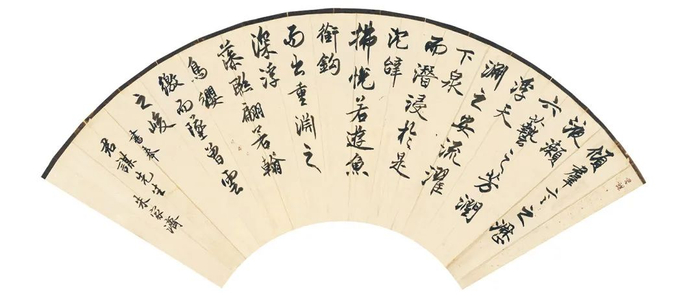 傾羣言之瀝
液漱
六藝之芳潤
浮天
淵之安流濯
下泉
而潛浸於是
沈辭
怫悅若遊魚
銜鉤
而出重淵之
深浮
藻聯翩若翰
鳥纓
繳而墜曾雲
之峻
書奉
君謀先生 朱家濟